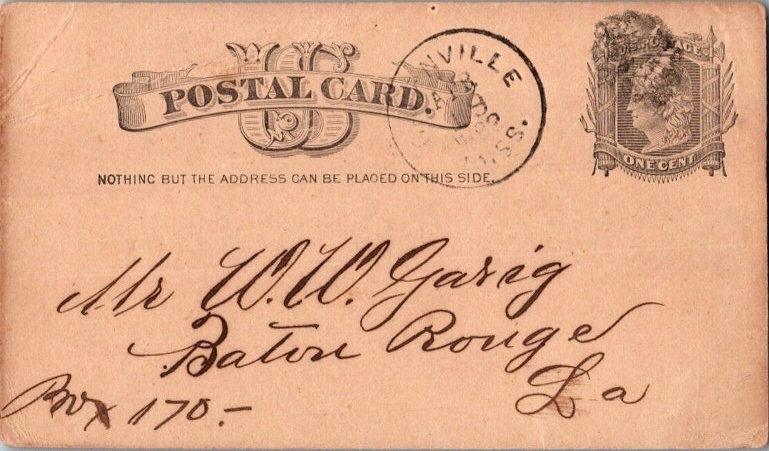 US
POSTAL CARD.
NOTHING BUT THE ADDRESS CAN BE PLACED ON THIS SIDE.
NVILLE
MISS.
U.S. POSTAGE
ONE CENT
Mr W. W. Garig
Baton Rouge
La
Box 170.-